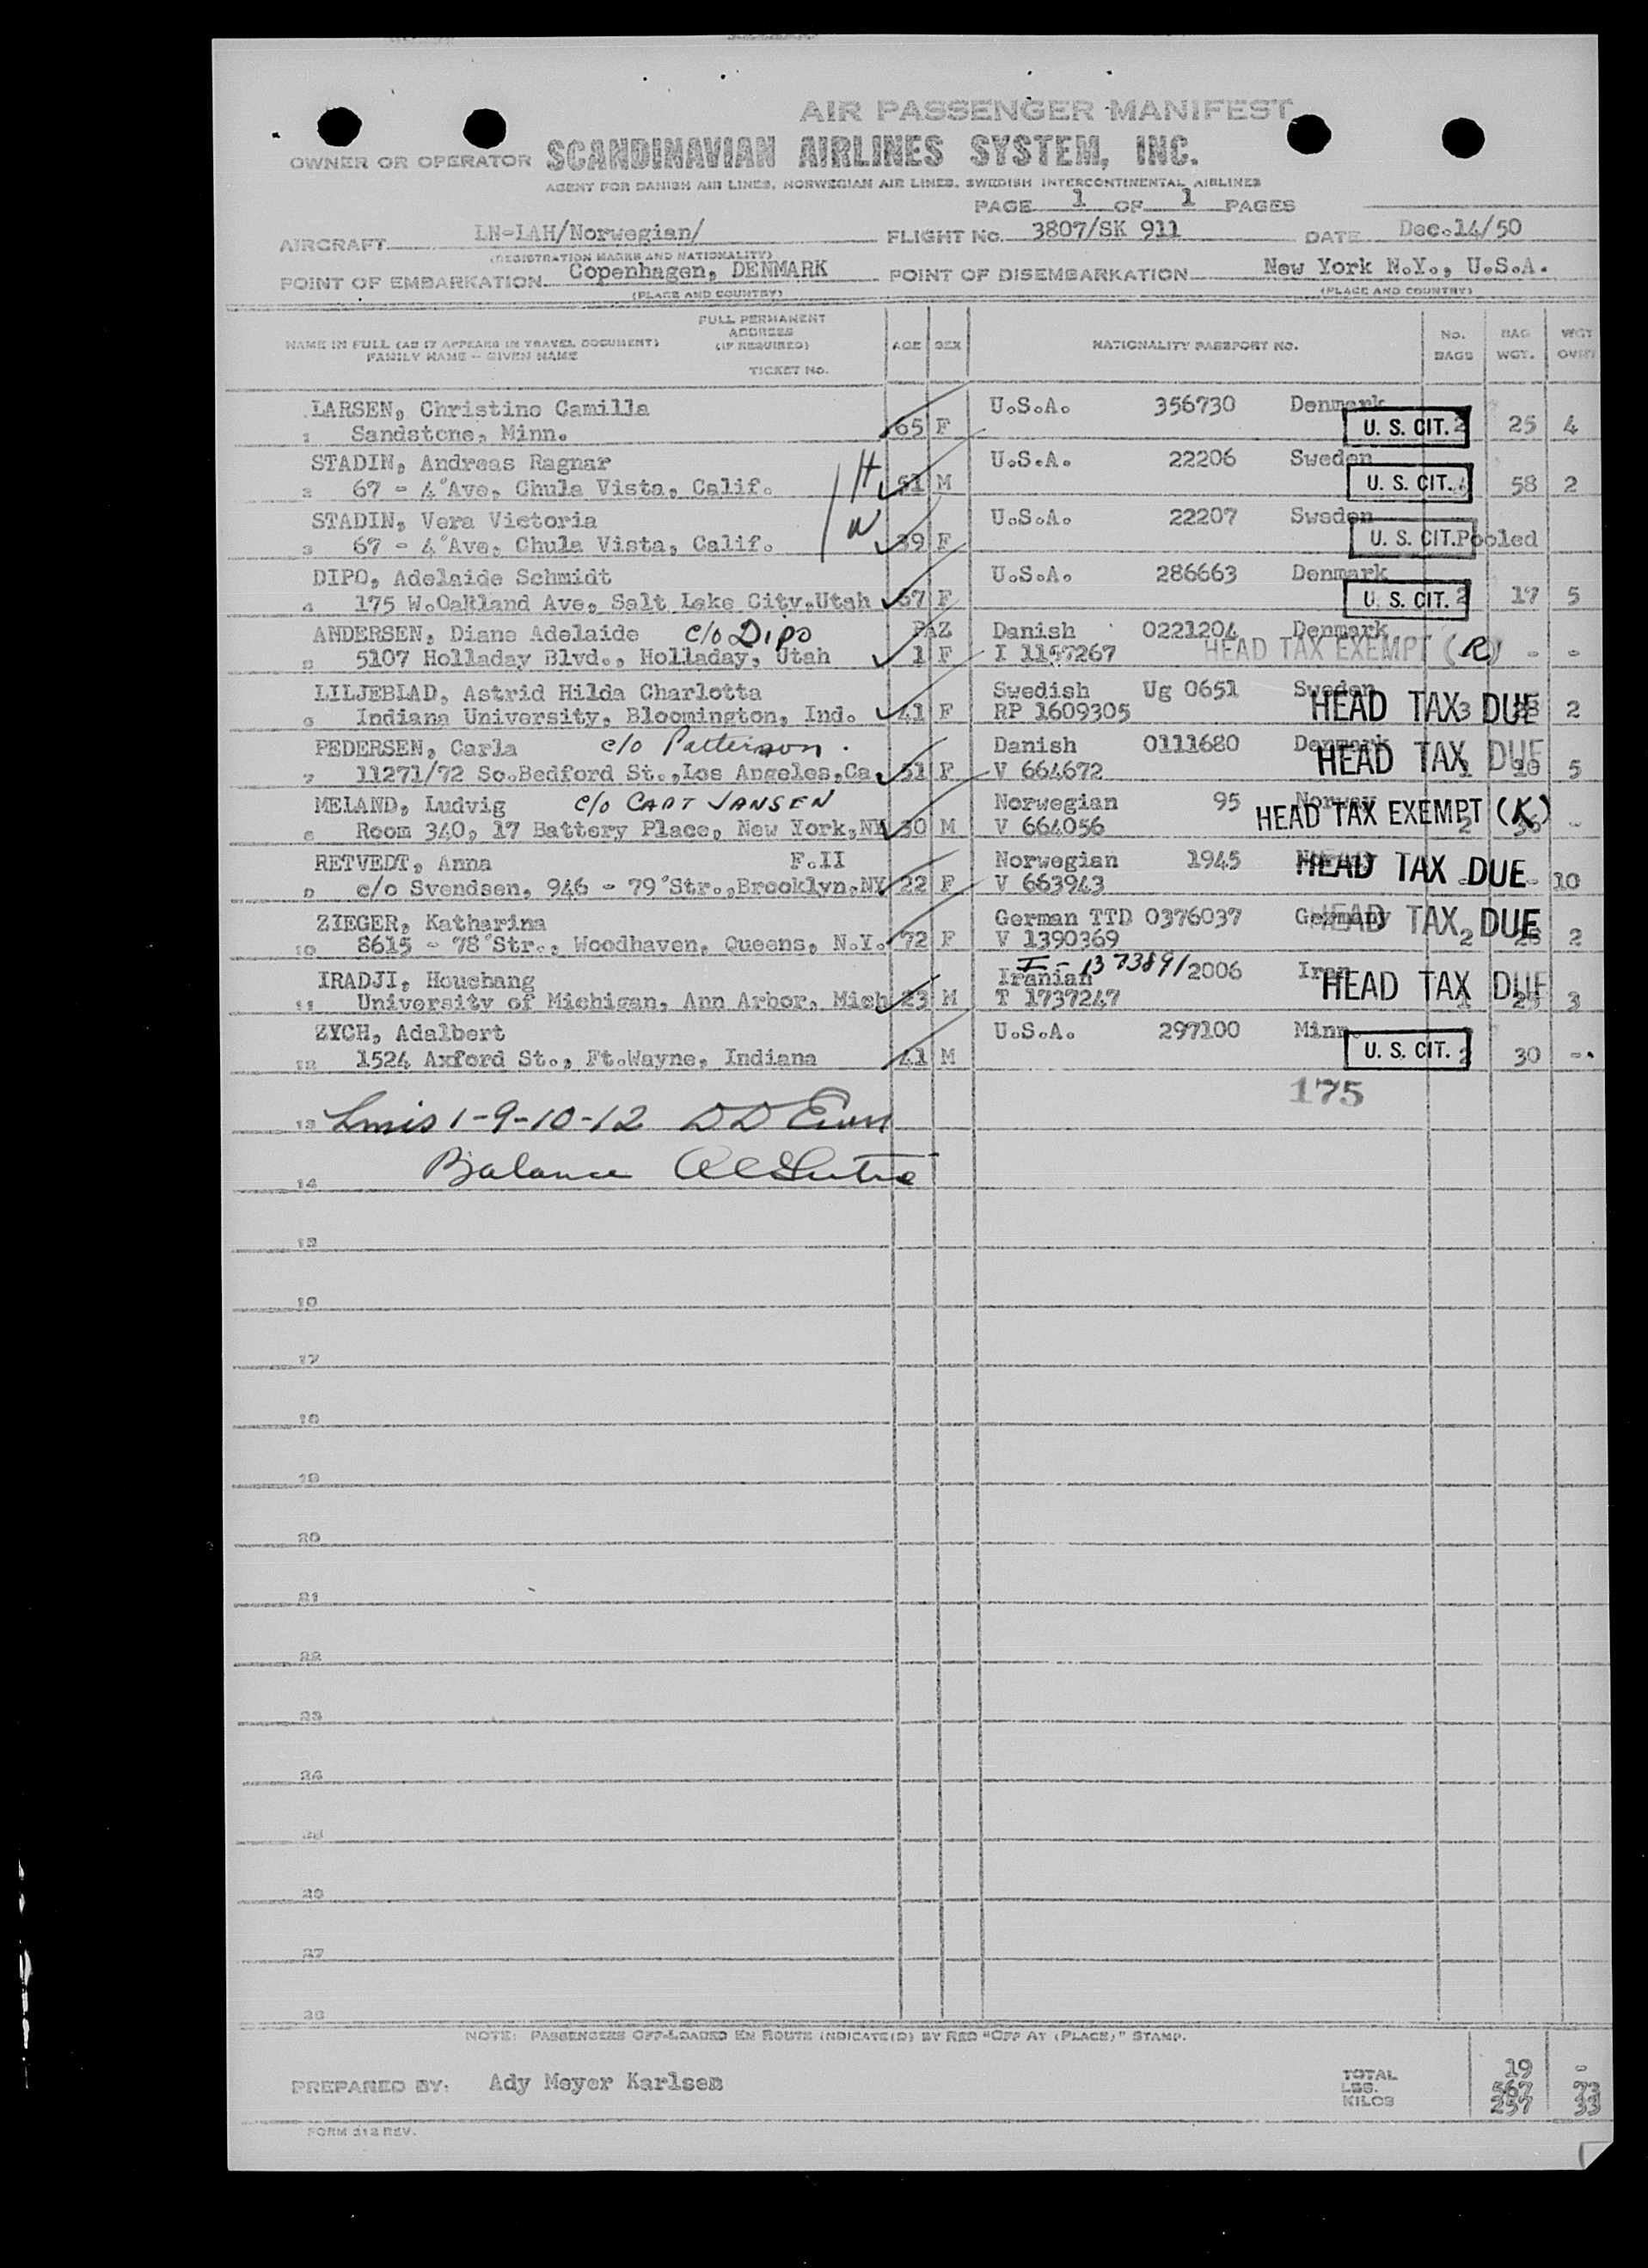 AIR PASSENGER MANIFEST
OWNER OR OPERATOR SCANDINAVIAN AIRLINES SYSTEM, INC.
AGENT FOR DANISH AIR LINES, NORWEGIAN AIR LINES, SWEDISH INTERCONTINENTAL AIRLINES
PAGE 1 OF 1 PAGES
AIRCRAFT LN-LAH/Norwegian/ FLIGHT No. 3807/SK 911 DATE Dec.14/50
(REGISTRATION MARKS AND NATIONALITY)
POINT OF EMBARKATION Copenhagen, DENMARK POINT OF DISEMBARKATION New York N.Y., U.S.A.
(PLACE AND COUNTRY) (PLACE AND COUNTRY)
FULL PERMANENT
ADDRESS
NAME IN FULL (AS IT APPEARS IN TRAVEL DOCUMENT) (IF REQUIRED) AGE SEX NATIONALITY PASSPORT NO. No. BAGS BAG WGT. WGT
FAMILY NAME - GIVEN NAME
TICKET No.
LARSEN, Christine Camilla U.S.A. 356730 Denmark
1 Sandstone, Minn. 65 F U. S. CIT. 2 25 4
STADIN, Andreas Ragnar H U.S.A. 22206 Sweden
2 67 - 4°Ave, Chula Vista, Calif. 51 M U. S. CIT. 58 2
STADIN, Vera Victoria W U.S.A. 22207 Sweden
3 67 - 4°Ave, Chula Vista, Calif. 39 F U. S. CIT. Pooled
DIPO, Adelaide Schmidt U.S.A. 286663 Denmark
4 175 W.Oakland Ave, Salt Lake City,Utah 67 F U. S. CIT. 2 17 5
ANDERSEN, Diane Adelaide c/o Dipo PAZ Danish 0221204 Denmark
5 5107 Holladay Blvd., Holladay, Utah 1 F I 1157267 HEAD TAX EXEMPT (R) - -
LILJEBLAD, Astrid Hilda Charlotta Swedish Ug 0651 Sweden
6 Indiana University, Bloomington, Ind. 41 F RP 1609305 HEAD TAX DUE 3 2
PEDERSEN, Carla c/o Patterson. Danish 0111680 Denmark
7 11271/72 So.Bedford St.,Los Angeles,Ca 51 F V 664672 HEAD TAX DUE 1 5
MELAND, Ludvig c/o CAPT JANSEN Norwegian 95 Norway
8 Room 340, 17 Battery Place, New York,NY 30 M V 664056 HEAD TAX EXEMPT (K) 2 -
RETVEDT, Anna F.II Norwegian 1945
9 c/o Svendsen, 946 - 79°Str.,Brooklyn,NY 22 F V 663943 HEAD TAX DUE - 10
ZIEGER, Katharina German TTD 0376037 Germany
10 8615 - 78°Str., Woodhaven, Queens, N.Y. 72 F V 1390369 HEAD TAX DUE 2 2
I-1373891
IRADJI, Houchang Iranian 2006 Iran
11 University of Michigan, Ann Arbor, Mich 23 M T 1737247 HEAD TAX DUE 1 3
ZYCH, Adalbert U.S.A. 297100 Minn.
12 1524 Axford St., Ft.Wayne, Indiana 41 M U. S. CIT. 2 30 -
175
13 1-9-10-12
14 Balance
15
16
17
18
19
20
21
22
23
24
25
26
27
28
NOTE: PASSENGERS OFF-LOADED EN ROUTE INDICATE(D) BY RED "OFF AT (PLACE)" STAMP.
TOTAL 19 -
PREPARED BY: Ady Meyer Karlsen LBS. 567 73
KILOS 257 33
FORM 212 REV.